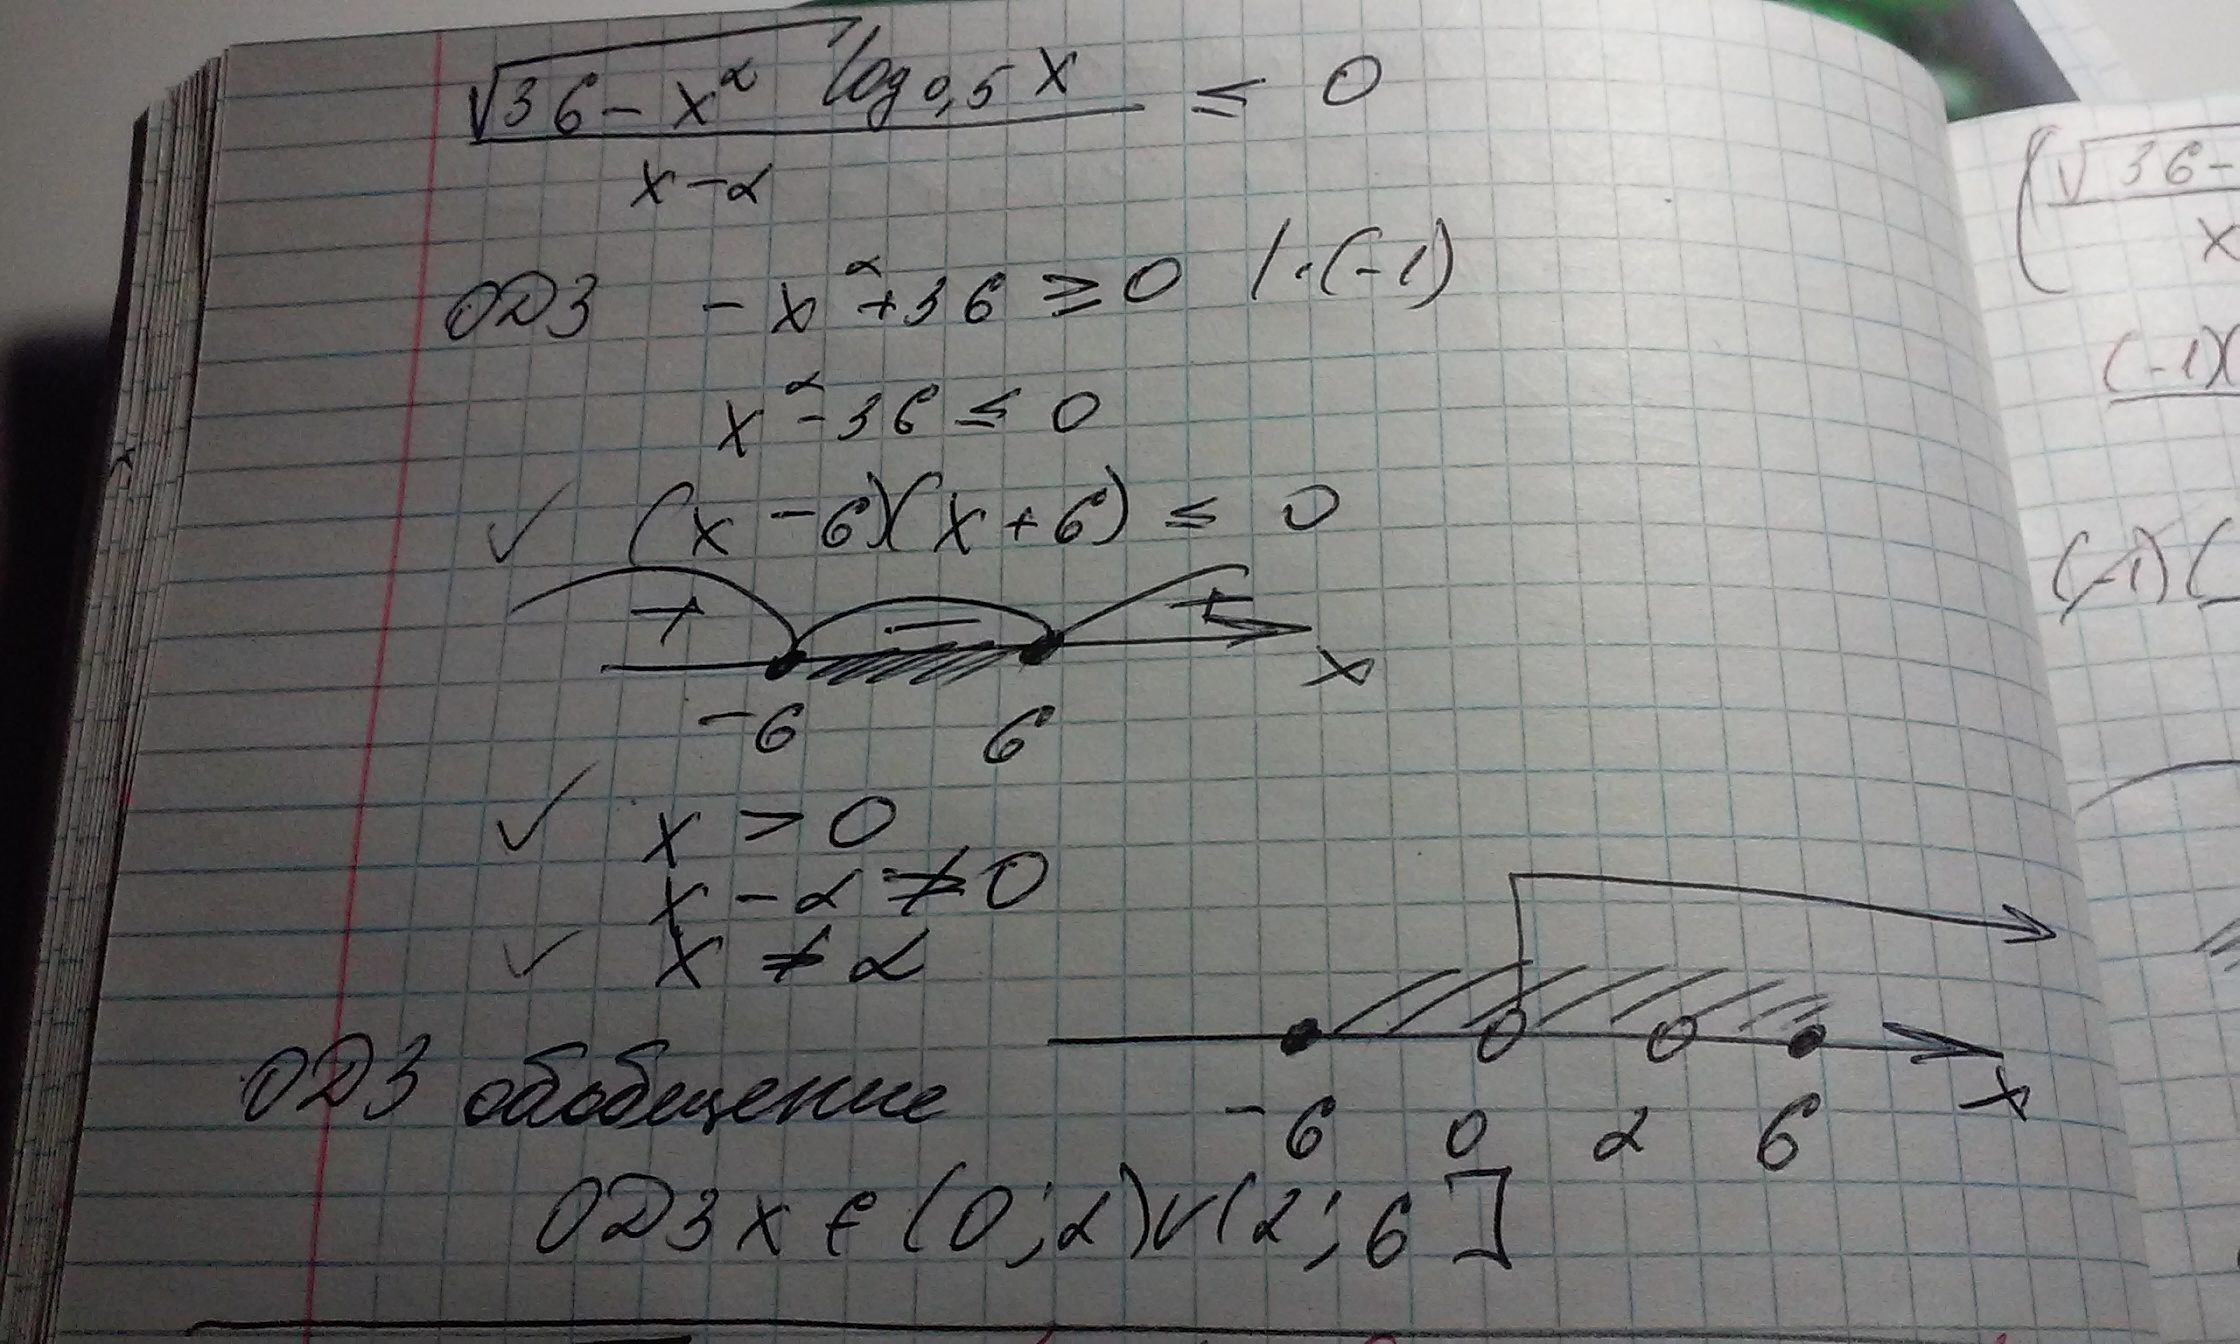 √36-x² log0,5 x ≤ 0
x-2
ОДЗ -x²+36 ≥ 0 /·(-1)
x²-36 ≤ 0
✓ (x-6)(x+6) ≤ 0
+ - +
x
-6 6
✓ x > 0
x-2 ≠ 0
✓ x ≠ 2
ОДЗ обобщение
-6 0 2 6 x
ОДЗ x ∈ (0;2)∪(2;6]
(√36-
x
(-1)(
(-1)(